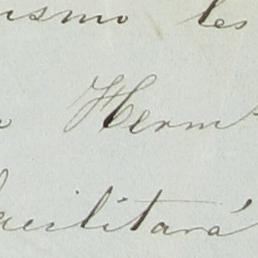 ismo les
Herm^s
facilitará